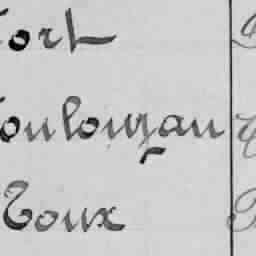 Fort
Toulouzan
Roux